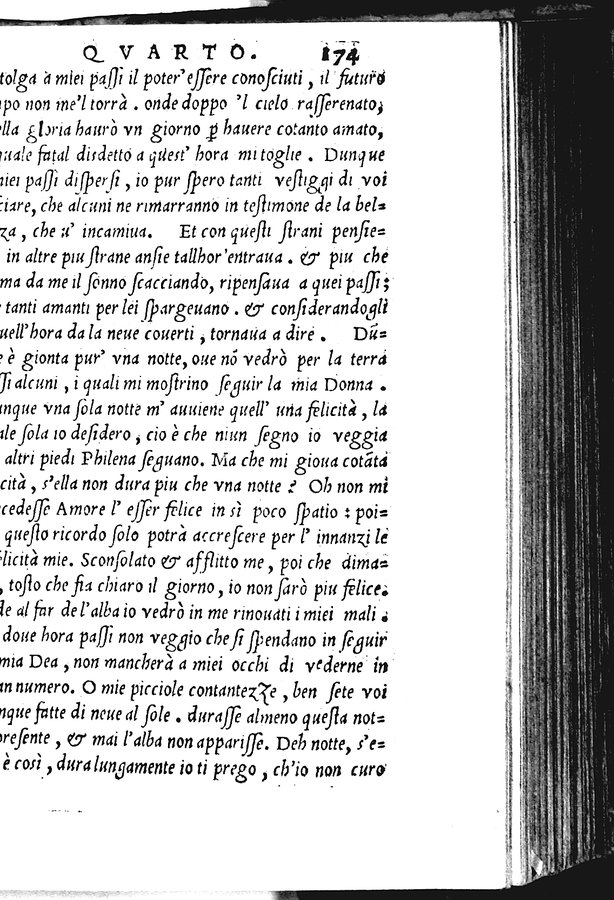 QVARTO. 174
tolga à miei paſſi il poter' eſſere conoſciuti, il futuro
po non me'l torrà. onde doppo 'l cielo raſſerenato,
lla gloria haurò vn giorno ꝑ hauere cotanto amato,
uale fatal disdetto a queſt' hora mi toglie. Dunque
iei paſſi diſperſi, io pur ſpero tanti veſtiggi di voi
ciare, che alcuni ne rimarranno in teſtimone de la bel=
za, che u' incamiua. Et con queſti ſtrani penſie=
in altre piu ſtrane anſie tallhor'entraua. & piu che
ma da me il ſonno ſcacciando, ripenſaua a quei paſſi;
tanti amanti per lei ſpargeuano. & conſiderandogli
uell'hora da la neue couerti, tornaua a dire. Dū=
e è gionta pur' vna notte, oue nō vedrò per la terra
ſi alcuni, i quali mi moſtrino ſeguir la mia Donna.
nque vna ſola notte m' auuiene quell' una felicità, la
ale ſola io deſidero, cio è che niun ſegno io veggia
altri piedi Philena ſeguano. Ma che mi gioua cotāta
cità, s'ella non dura piu che vna notte? Oh non mi
cedeſſe Amore l' eſſer felice in sì poco ſpatio: poi=
queſto ricordo ſolo potrà accreſcere per l' innanzi le
licità mie. Sconſolato & afflitto me, poi che dima=
, toſto che fia chiaro il giorno, io non ſarò piu felice.
de al far de l'alba io vedrò in me rinouati i miei mali.
doue hora paſſi non veggio che ſi ſpendano in ſeguir
mia Dea, non mancherà a miei occhi di vederne in
an numero. O mie picciole contantezze, ben ſete voi
nque fatte di neue al ſole. duraſſe almeno queſta not=
preſente, & mai l'alba non appariſſe. Deh notte, s'e=
è così, dura lungamente io ti prego, ch'io non curo